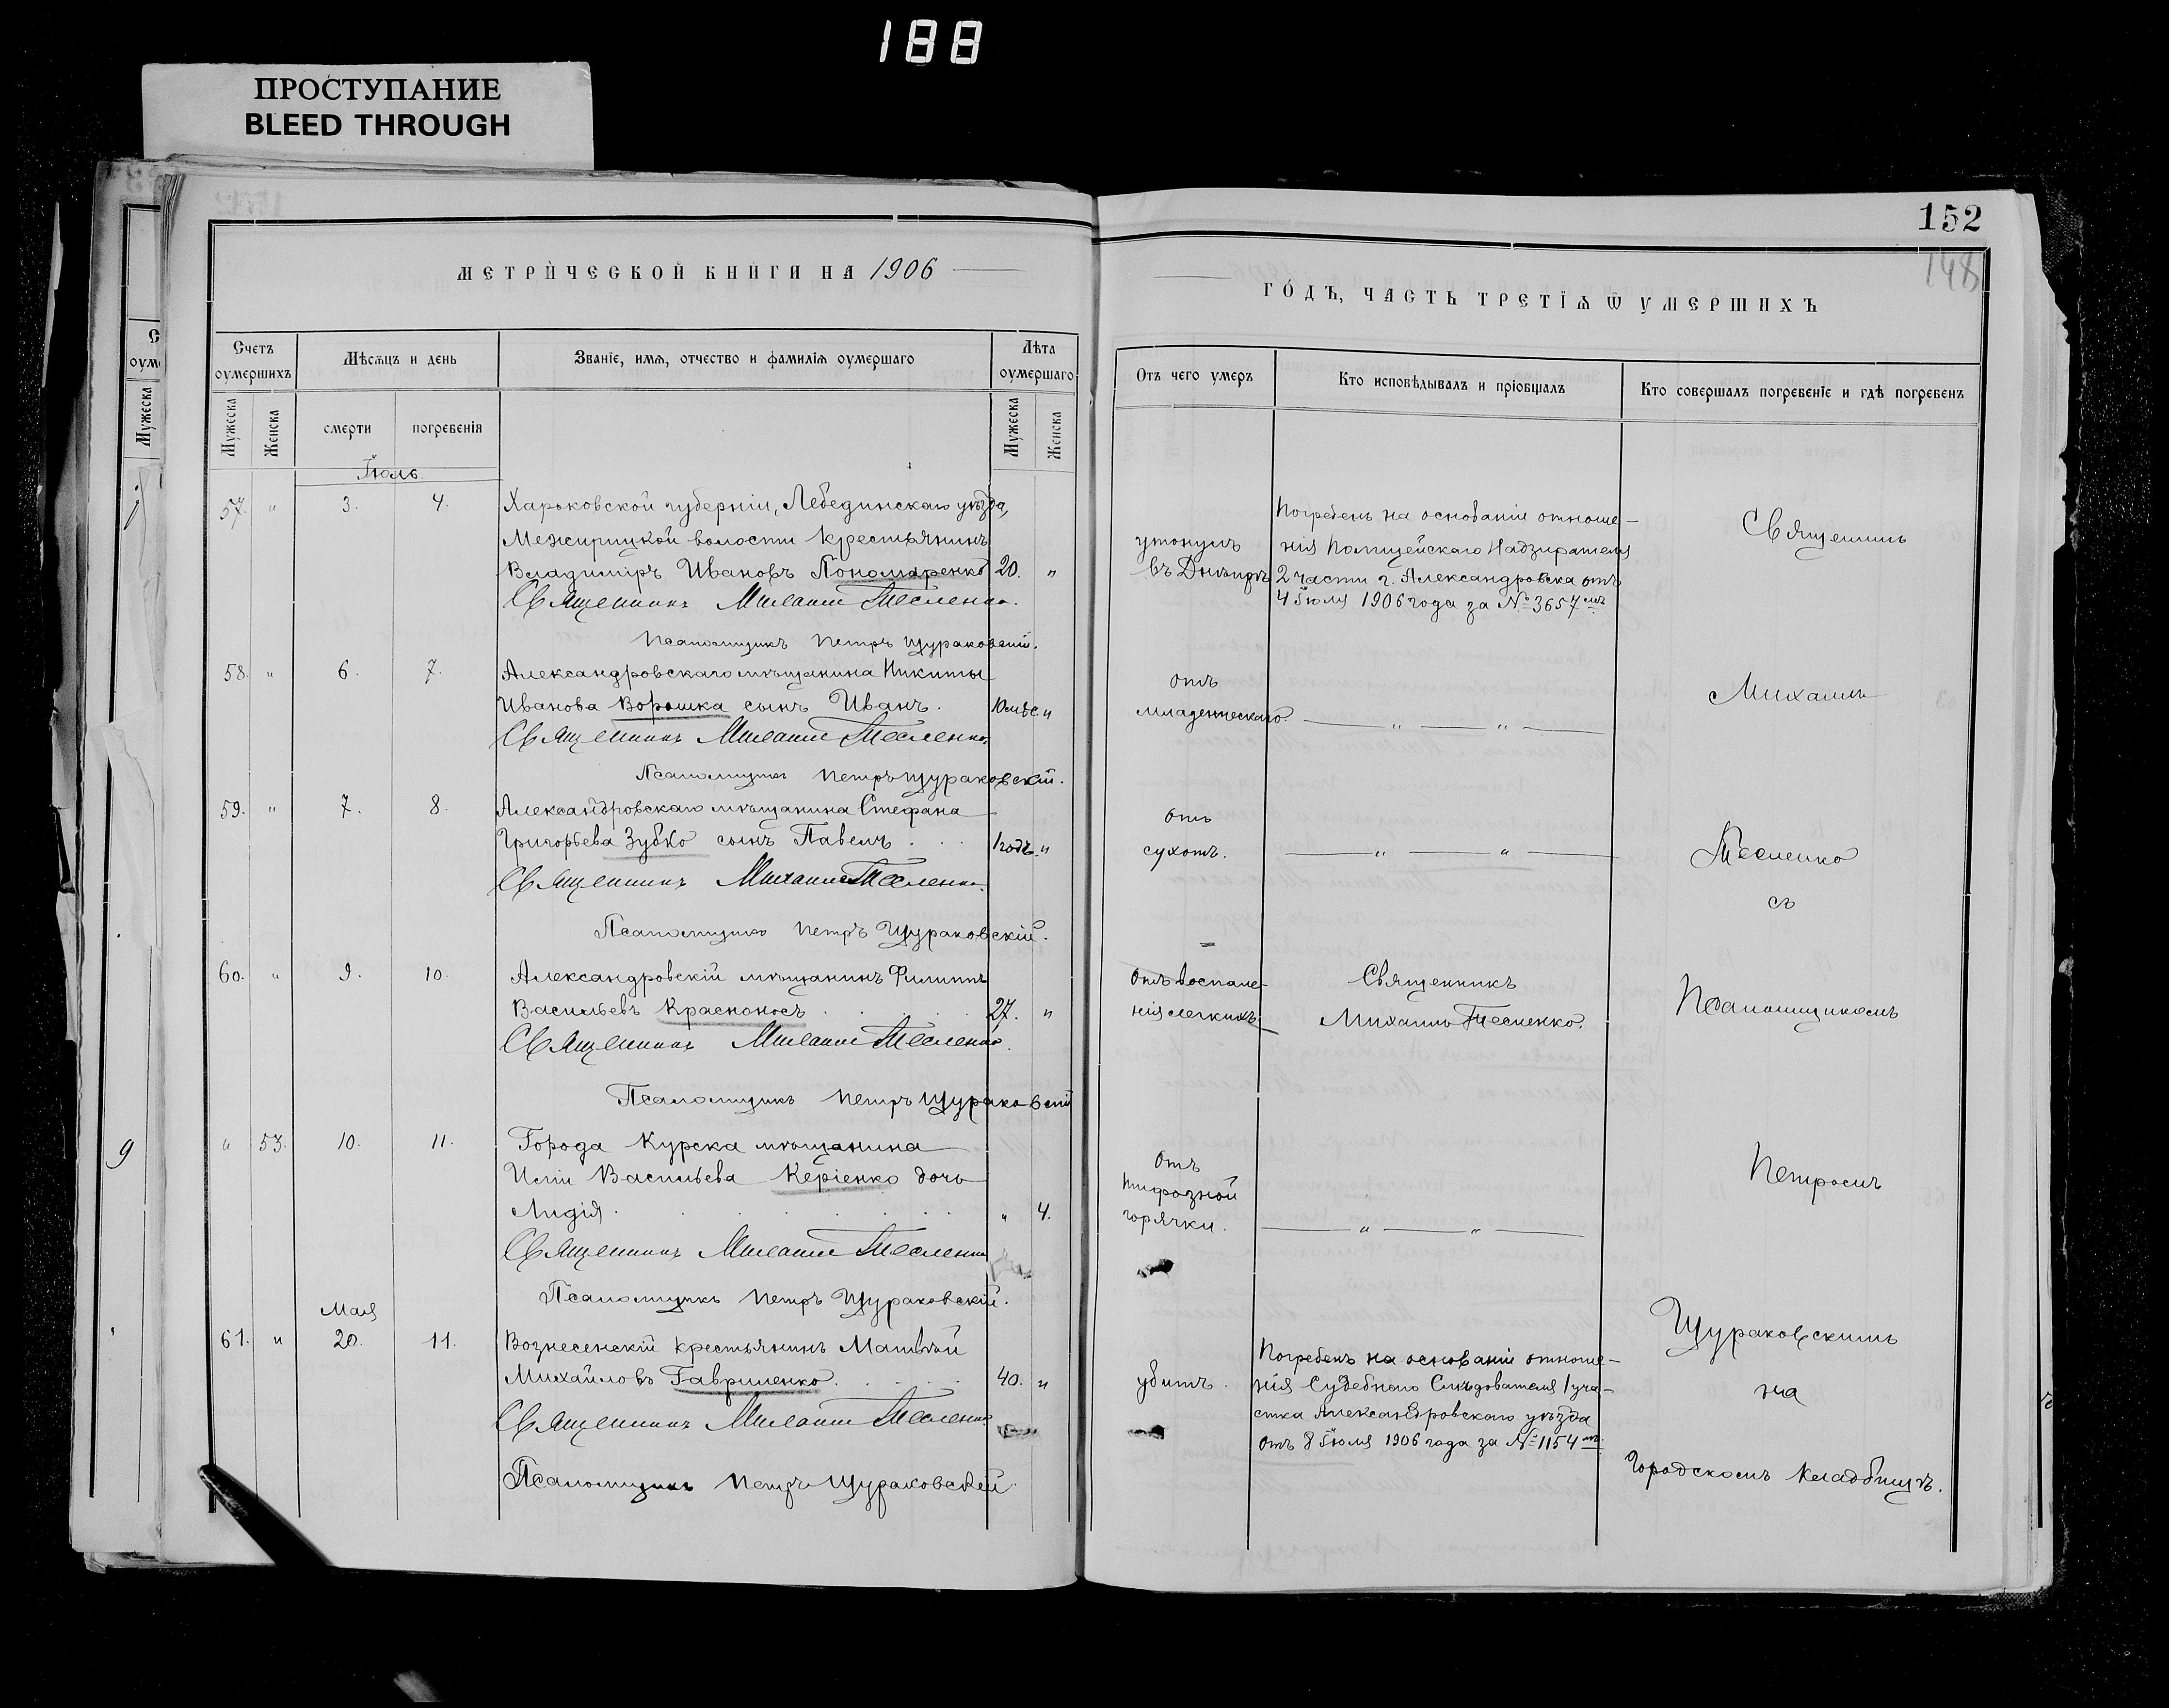 188
ПРОСТУПАНИЕ
BLEED THROUGH
МЕТРИЧЕСКОЙ КНИГИ НА 1906
Счетъ оумершихъ
Мѣсяцъ и день
Званіе, имя, отчество и фамилія оумершаго
Лѣта оумершаго
Мужеска
Женска
смерти
погребенія
Мужеска
Женска
Іюль
57. " 3. 4. Харьковской губерніи, Лебединскаго уѣзда,
Межирицкой волости крестьянинъ
Владиміръ Ивановъ Пономаренко 20. "
Священникъ Михаилъ Тесленко.
Псаломщикъ Петръ Щураковскій.
58. " 6. 7. Александровскаго мѣщанина Никиты
Иванова Ворошка сынъ Иванъ. 10 мѣс. "
Священникъ Михаилъ Тесленко.
Псаломщикъ Петръ Щураковскій.
59. " 7. 8. Александровскаго мѣщанина Стефана
Григорьева Зубко сынъ Павелъ . . . 1 годъ "
Священникъ Михаилъ Тесленко.
Псаломщикъ Петръ Щураковскій.
60. " 9. 10. Александровскій мѣщанинъ Филиппъ
Васильевъ Красноносъ . . . 27. "
Священникъ Михаилъ Тесленко.
Псаломщикъ Петръ Щураковскій
" 53. 10. 11. Города Курска мѣщанина
Иліи Васильева Керіенко дочь
Лидія . . . . . . " 4.
Священникъ Михаилъ Тесленко
Псаломщикъ Петръ Щураковскій.
Мая
61. " 20. 11. Вознесенскій крестьянинъ Матвѣй
Михайловъ Гавриленко . . . . 40. "
Священникъ Михаилъ Тесленко
Псаломщикъ Петръ Щураковскій
152
148
ГОДЪ, ЧАСТЬ ТРЕТІЯ Ѿ УМЕРШИХЪ
Отъ чего умеръ
Кто исповѣдывалъ и пріобщалъ
Кто совершалъ погребеніе и гдѣ погребенъ
утонулъ
въ Днѣпрѣ
Погребенъ на основаніи отноше-
нія Полицейскаго Надзирателя
2 части г. Александровска отъ
4 Іюля 1906 года за № 3657 мъ
Священникъ
отъ
младенческаго.
" "
Михаилъ
отъ
сухотъ.
" "
Тесленко
съ
Отъ воспале-
нія легкихъ.
Священникъ
Михаилъ Тесленко.
Псаломщикомъ
отъ
тифозной
горячки.
" "
Петромъ
Щураковскимъ
убитъ.
Погребенъ на основаніи отноше-
нія Судебнаго Слѣдователя 1 уча-
стка Александровскаго уѣзда
отъ 8 Іюля 1906 года за № 1154 мъ
на
Городскомъ кладбищѣ.